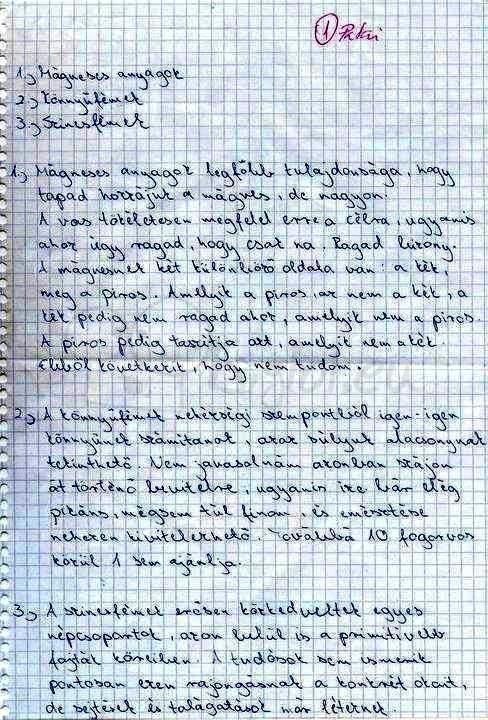 1 Petri
1, Mágneses anyagok
2, Könnyűfémek
3, Színesfémek
1, Mágneses anyagok legfőbb tulajdonsága, hogy
tapad hozzájuk a mágnes, de nagyon.
A vas tökéletesen megfelel erre a célra, ugyanis
ahoz úgy ragad, hogy csak na. Ragad bizony.
A mágnesnek két különböző oldala van: a kék,
meg a piros. Amelyik a piros, az nem a kék, a
kék pedig nem ragad ahoz, amelyik nem a piros.
A piros pedig taszítja azt, amelyik nem a kék.
Ebből következik, hogy nem tudom.
2, A könnyűfémek nehézségi szempontból igen-igen
könnyűnek számítanak, azaz súlyuk alacsonynak
tekinthető. Nem javasolnám azonban szájon
át történő bevitelre, ugyanis íze bár elég
pikáns, mégsem túl finom, és emésztése
nehezen kivitelezhető. Továbbá 10 fogorvos
közül 1 sem ajánlja.
3, A színesfémek erősen közkedveltek egyes
népcsoportok, azon belül is a primitívebb
fajták körében. A tudósok sem ismerik
pontosan ezen rajongásnak a konkrét okait,
de sejtések és találgatások már léteznek.